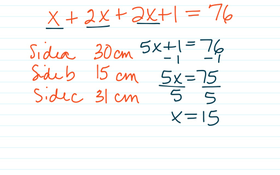 x + 2x + 2x + 1 = 76
Side a 30 cm
Side b 15 cm
Side c 31 cm
5x + 1 = 76
-1 -1
5x = 75
5 5
x = 15